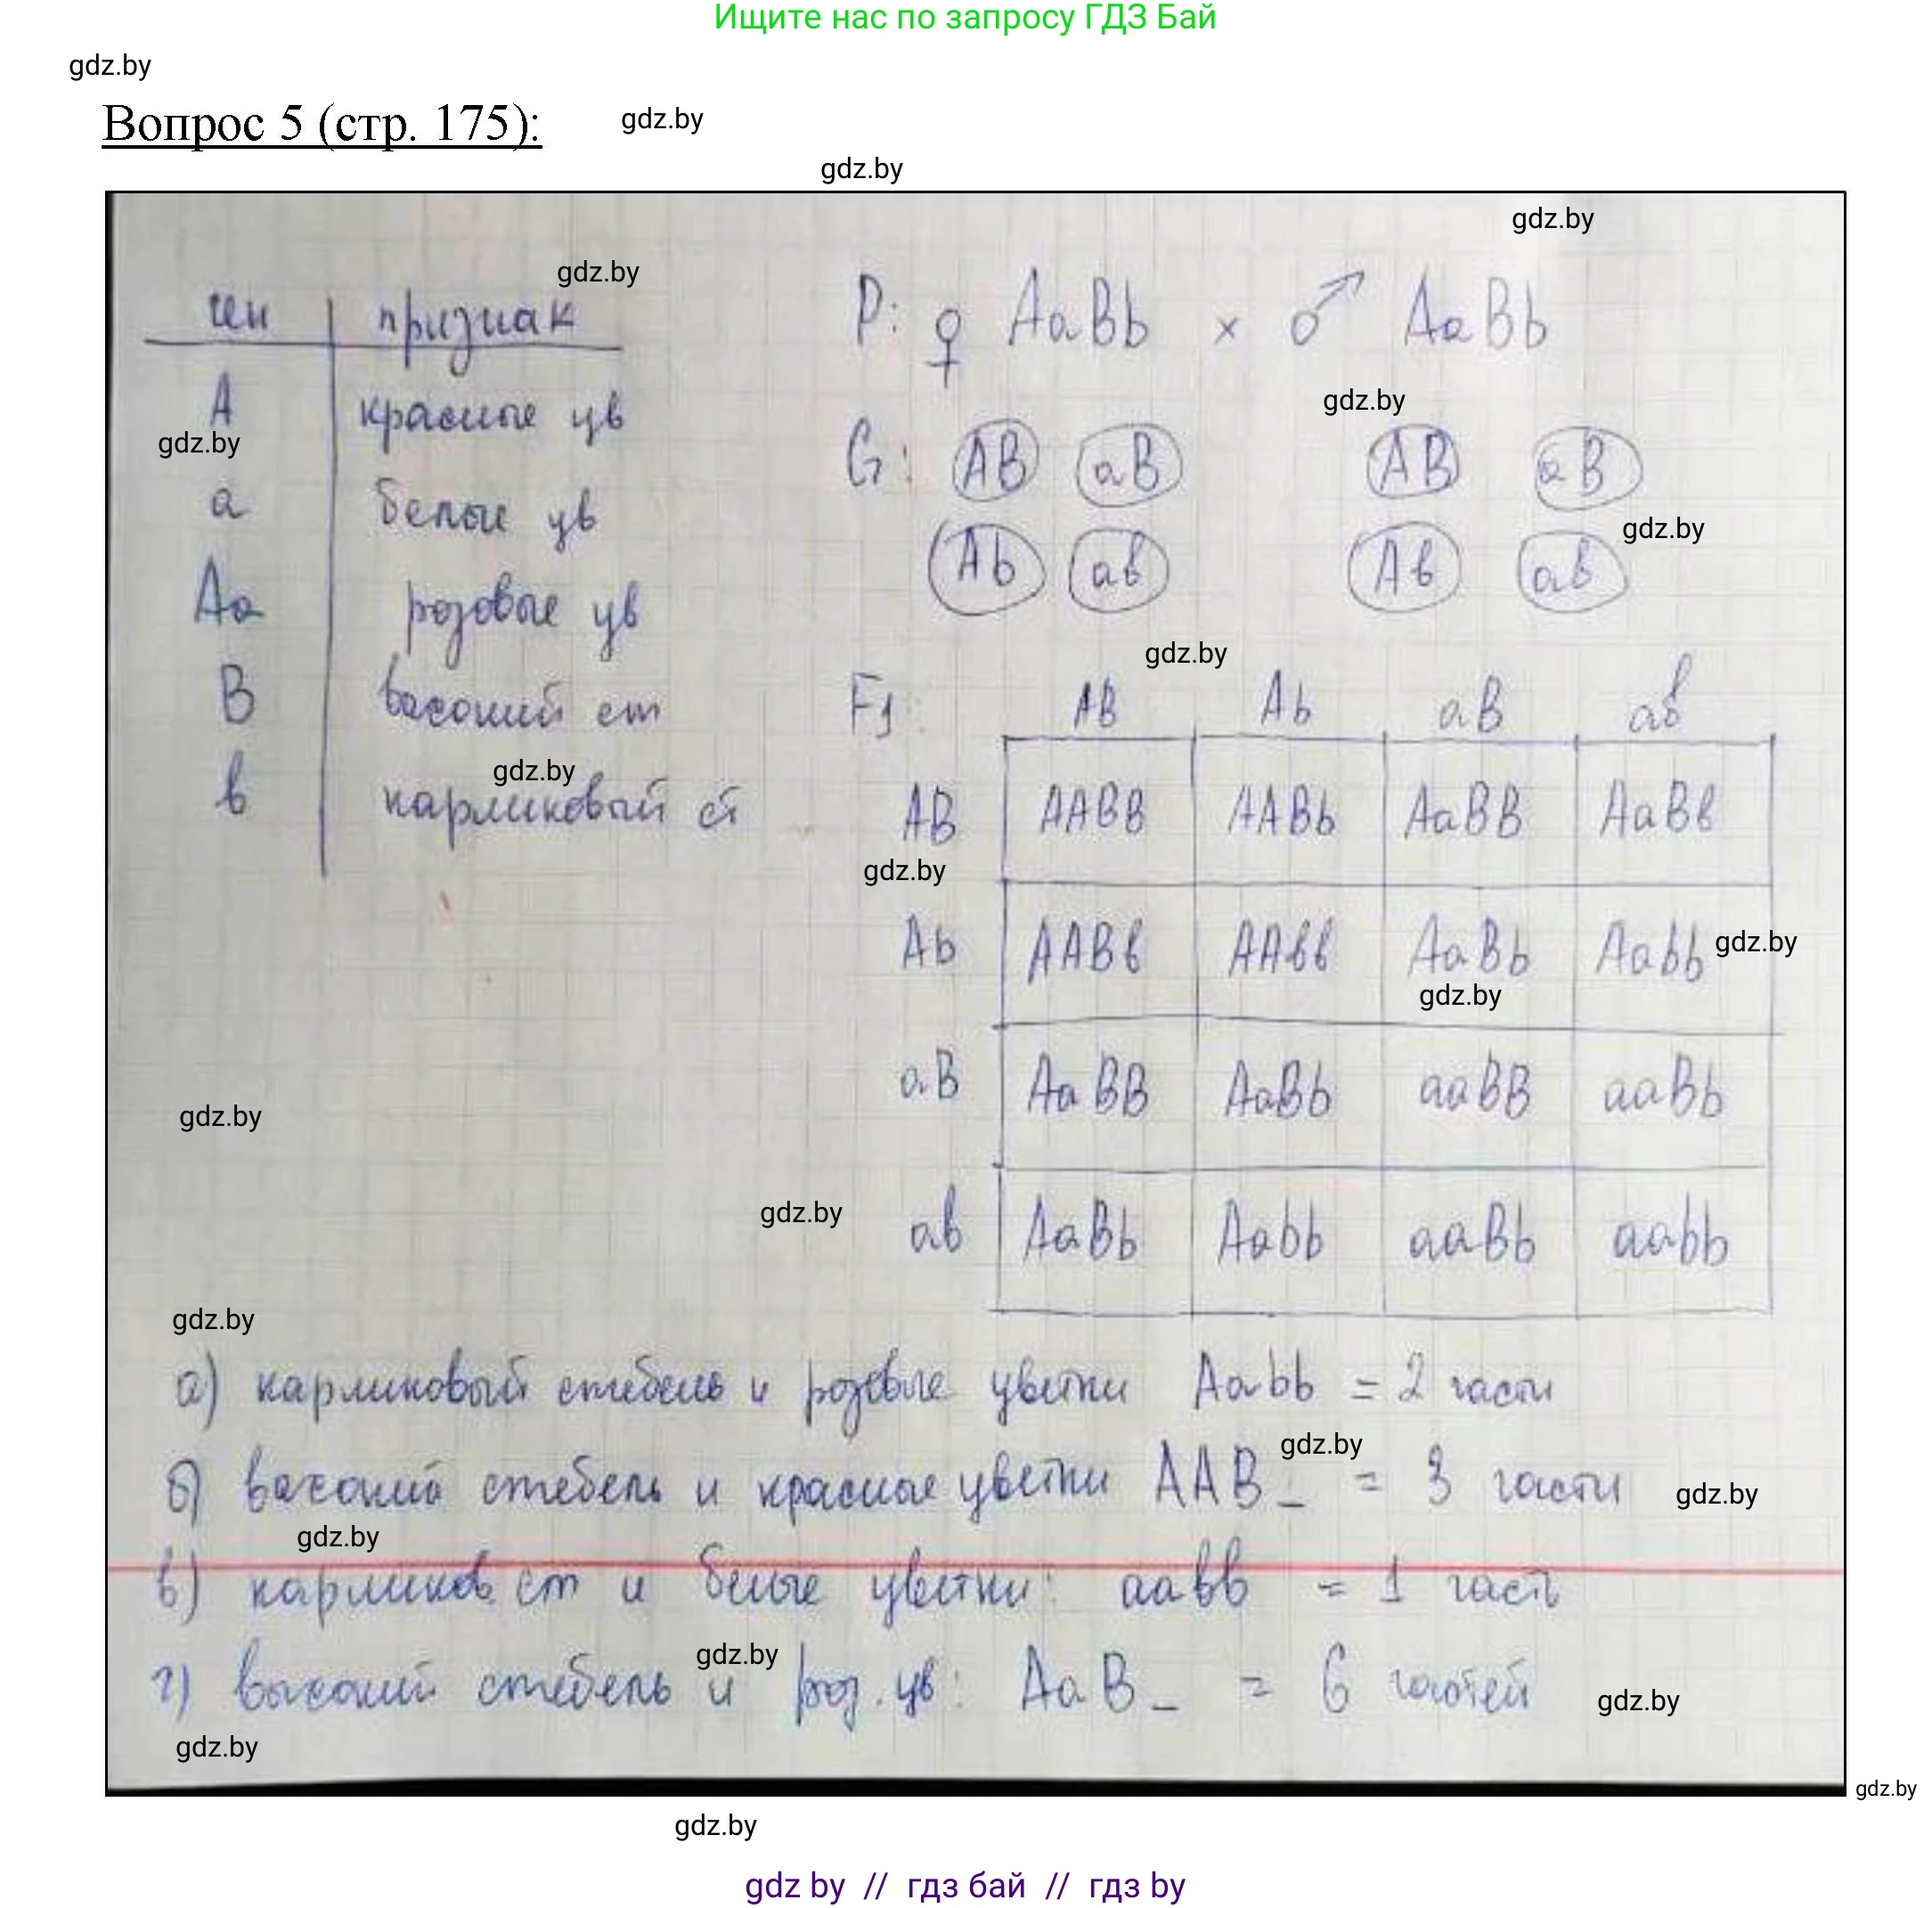 Ищите нас по запросу ГДЗ Бай
gdz.by
Вопрос 5 (стр. 175):
gdz.by
gdz.by
gdz.by
gdz.by
ген признак
P: ♀ AaBb × ♂ AaBb
A красные цв
gdz.by
gdz.by
G: AB aB AB aB
a белые цв
Ab ab Ab ab
gdz.by
Aa розовые цв
gdz.by
B высокий ст
F1: AB Ab aB ab
gdz.by
b карликовый ст
AB AABB AABb AaBB AaBb
gdz.by
Ab AABb AAbb AaBb Aabb
gdz.by
gdz.by
aB AaBB AaBb aaBB aaBb
gdz.by
gdz.by
ab AaBb Aabb aaBb aabb
gdz.by
а) карликовый стебель и розовые цветки Aabb = 2 части
gdz.by
б) высокий стебель и красные цветки AAB_ = 3 части
gdz.by
gdz.by
в) карликов ст и белые цветки: aabb = 1 часть
gdz.by
г) высокий стебель и роз. цв: AaB_ = 6 частей
gdz.by
gdz.by
gdz.by
gdz.by
gdz by // гдз бай // гдз by